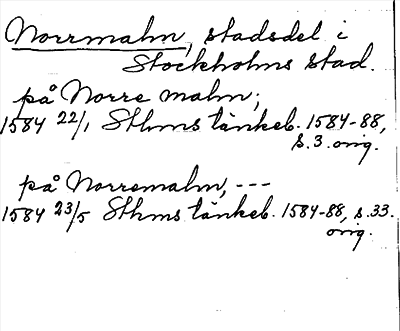 Norrmalm, stadsdel i
Stockholms stad.
på Norre malm;
1584 22/1 Sthms tänkeb. 1584-88,
s. 3. orig.
på Norremalm, ---
1584 23/5 Sthms tänkeb. 1584-88, s. 33.
orig.